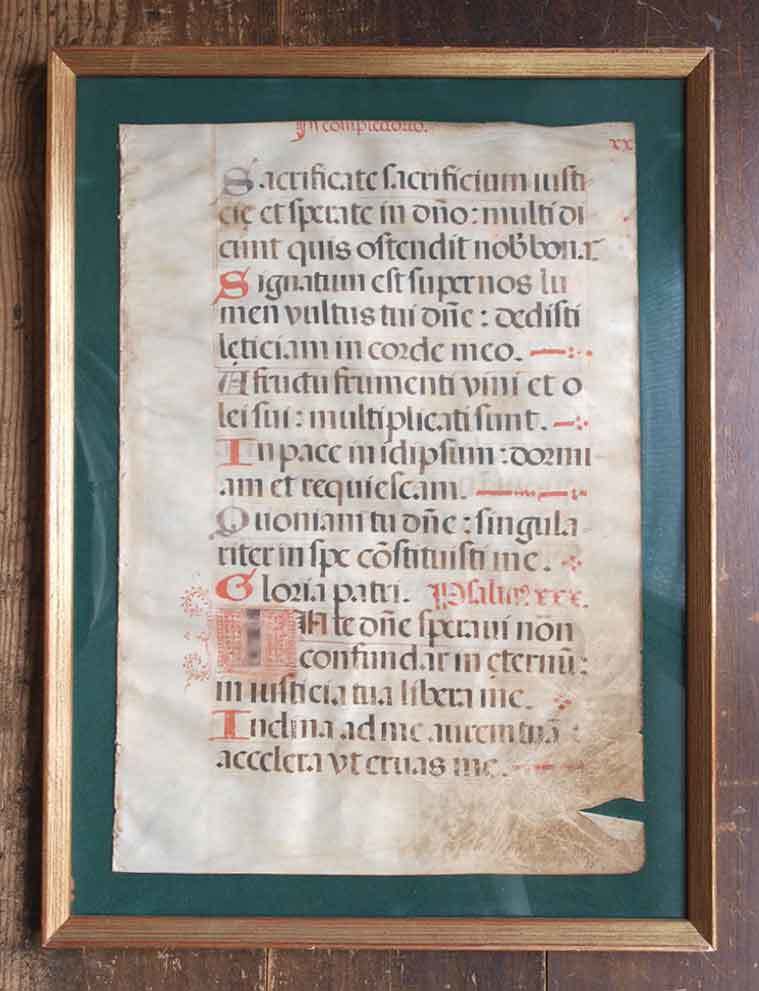 In completorio.
xx
Sacrificate sacrificium iusti
cię et sperate in dño: multi di
cunt quis ostendit nob̄ bona?
Signatum est super nos lu
men vultus tui dñe: dedisti
lęticiam in corde meo.
A fructu frumenti vini et o
lei sui: multiplicati sunt.
In pace in idipsum: dormi
am et requiescam.
Quoniam tu dñe: singula
riter in spe cõstituisti me.
Gloria patri. Psalm⁹ xxx.
IN te dñe speravi nõn
confundar in ęternũ:
in iusticia tua libera me.
Inclina ad me aurem tuã:
accelera vt eruas me.